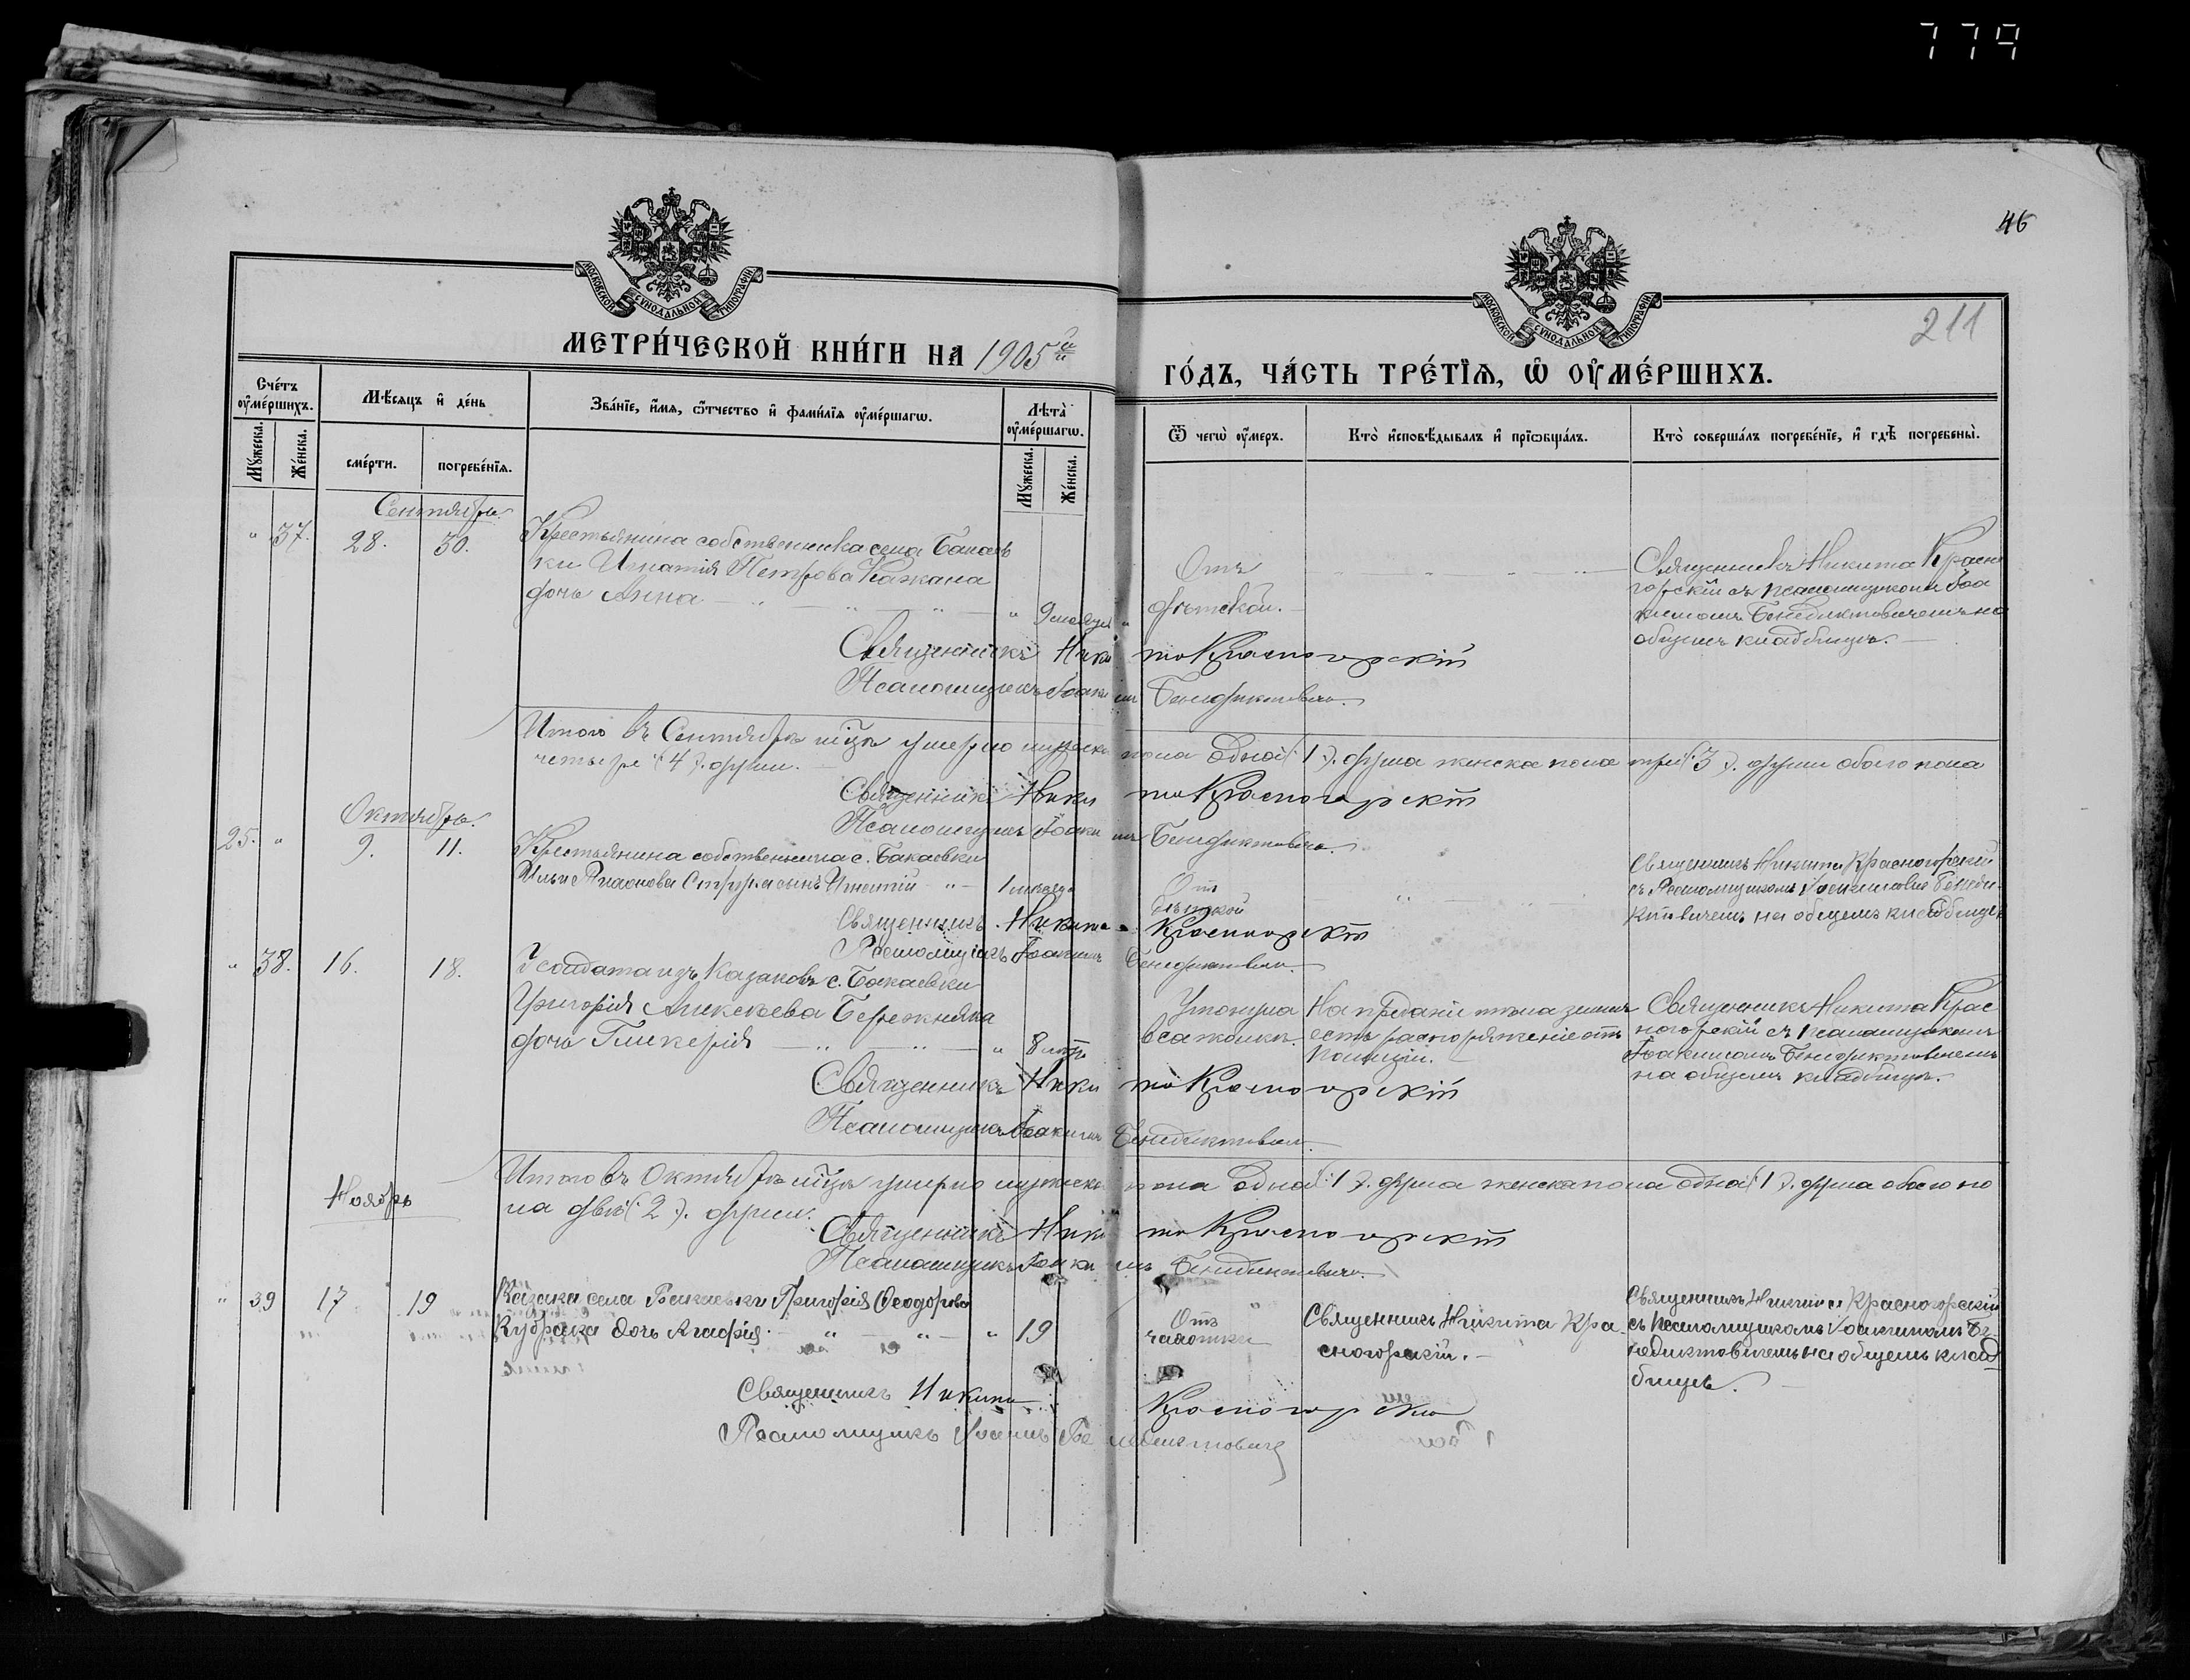 779
46
211
МОСКОВСКОЙ СѴНОДАЛЬНОЙ ТИПОГРАФІИ
МОСКОВСКОЙ СѴНОДАЛЬНОЙ ТИПОГРАФІИ
МЕТРИ́ЧЕСКОЙ КНИ́ГИ НА 1905й ГО́ДЪ, ЧА́СТЬ ТРЕ́ТЇѦ, Ѡ҆ ОУ҆МЕ́РШИХЪ.
Сче́тъ оу҆ме́ршихъ.
Мꙋ́жеска.
Же́нска.
Мѣ́сѧцъ и҆ де́нь
сме́рти.
погребе́нїѧ.
Зва́нїе, и҆́мѧ, ѻ҆́тчество и҆ фами́лїѧ оу҆ме́ршагѡ.
Лѣ́та оу҆ме́ршагѡ.
Мꙋ́жеска.
Же́нска.
Ѿ чегѡ̀ оу҆́меръ.
Кто̀ и҆сповѣ́дывалъ и҆ прїѡбща́лъ.
Кто̀ соверша́лъ погребе́нїе, и҆ гдѣ̀ погребены̀.
Сентябрь.
" 37. 28. 30.
Крестьянина собственника села Бакаев
ки Игнатія Петрова Кажана
дочь Анна
" 9 месяц.
Отъ
дѣтской.
Священникъ Никита Красно
горскій съ псаломщикомъ Іоа
кимомъ Бенедиктовичемъ на
общемъ кладбищѣ.
Священникъ Никита Красногорскій
Псаломщикъ Іоакимъ Бенедиктовичъ.
Итого въ Сентябрѣ м‑цѣ умерло мужеска пола одна (1). душа женска пола три (3). души обоего пола
четыре (4). души.
Священникъ Никита Красногорскій
Псаломщикъ Іоакимъ Бенедиктовичъ.
Октябрь.
25. " 9. 11.
Крестьянина собственника с. Бакаевки
сынъ Игнатій " 1 месяца
Отъ
дѣтской
Священникъ Никита Красногорскій
съ Псаломщикомъ Іоакимовъ Бенеди‑
ктовичемъ на общемъ кладбищѣ
Священникъ Никита Красногорскій
Псаломщикъ Іоакимъ Бенедиктовичъ.
" 38. 16. 18.
Солдата изъ Казаковъ с. Бакаевки
Григорія Алексѣева Бережняка
дочь Гликерія " 8 лѣтъ
Утонула
въ сажалки.
На преданіи тѣла землѣ
есть распоряженіе отъ
полиціи.
Священникъ Никита Крас
ногорскій съ псаломщикомъ
Іоакимомъ Бенедиктовичемъ
на общемъ кладбищѣ.
Священникъ Никита Красногорскій
Псаломщикъ Іоакимъ Бенедиктовичъ
Итого въ Октябрѣ м‑цѣ умерло мужеска пола одна (1). душа женска пола одна (1). душа обоего по
ла двѣ (2). души.
Священникъ Никита Красногорскій
Псаломщикъ Іоакимъ Бенедиктовичъ.
Ноябрь
" 39 17 19
Казака села Бакаевки Григорія Ѳеодорова
Кубрака дочь Агафія. " 19
Отъ
чахотки
Священникъ Никита Кра‑
сногорскій.
Священникъ Никита Красногорскій
съ псаломщикомъ Іоакимомъ Бе‑
недиктовичемъ на общемъ клад
бищѣ.
Священникъ Никита Красногорскій
Псаломщикъ Іоакимъ Бенедиктовичъ